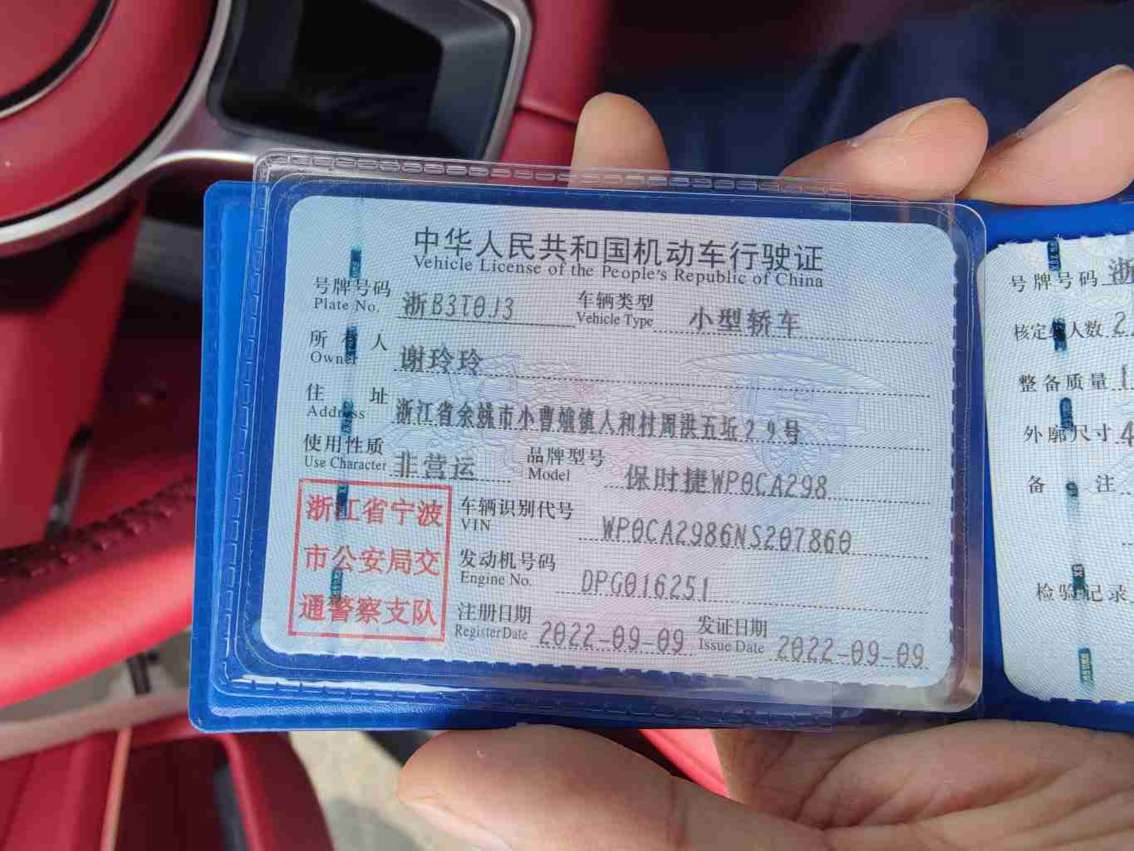 中华人民共和国机动车行驶证
Vehicle License of the People's Republic of China
号牌号码 浙B3T0J3 车辆类型 小型轿车
Plate No. Vehicle Type
所有人 谢玲玲
Owner
住址 浙江省余姚市小曹娥镇人和村周洪五坵29号
Address
使用性质 非营运 品牌型号 保时捷WP0CA298
Use Character Model
浙江省宁波
市公安局交
通警察支队
车辆识别代号 WP0CA2986NS207860
VIN
发动机号码 DPG016251
Engine No.
注册日期 2022-09-09 发证日期 2022-09-09
Register Date Issue Date
号牌号码 浙
核定 人数 2
整备质量 1
外廓尺寸 4
备注
检验记录